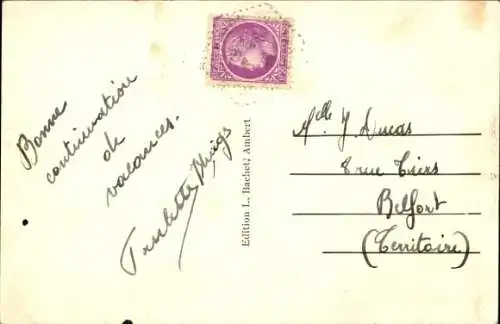 Bonne
continuation
de
vacances.
Paulette
Edition L. Bachet, Ambert
Mlle Y. Lucas
rue Thiers
Belfort
(Territoire)